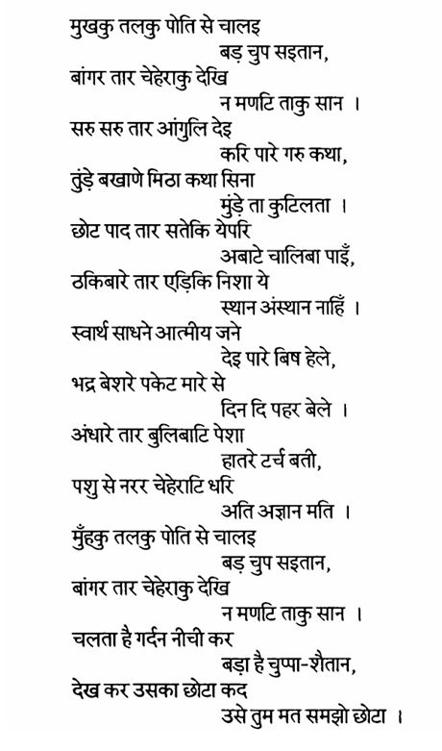 मुखकु तलकु पोति से चालइ
बड़ चुप सइतान,
बांगर तार चेहेराकु देखि
न मणटि ताकु सान ।
सरु सरु तार आंगुलि देइ
करि पारे गरु कथा,
तुंड़े बखाणे मिठा कथा सिना
मुंड़े ता कुटिलता ।
छोट पाद तार सतेकि येपरि
अबाटे चालिबा पाइँ,
ठकिबारे तार एड़िकि निशा ये
स्थान अंस्थान नाहिँ ।
स्वार्थ साधने आत्मीय जने
देइ पारे बिष हेले,
भद्र बेशरे पकेट मारे से
दिन दि पहर बेले ।
अंधारे तार बुलिबाटि पेशा
हातरे टर्च बती,
पशु से नरर चेहेराटि धरि
अति अज्ञान मति ।
मुँहकु तलकु पोति से चालइ
बड़ चुप सइतान,
बांगर तार चेहेराकु देखि
न मणटि ताकु सान ।
चलता है गर्दन नीची कर
बड़ा है चुप्पा-शैतान,
देख कर उसका छोटा कद
उसे तुम मत समझो छोटा ।